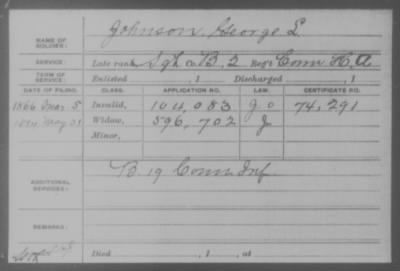 NAME OF SOLDIER: Johnson, George L.
SERVICE: Late rank, Sgt Co B, 2 Reg't Conn H. A
TERM OF SERVICE: Enlisted , 1 Discharged , 1
DATE OF FILING. CLASS. APPLICATION NO. LAW. CERTIFICATE NO.
1866 Mar 5 Invalid, 104,083 74,291
May Widow, 596,702
Minor,
ADDITIONAL SERVICES: B 19 Conn Inf
REMARKS:
Died , 1 , at